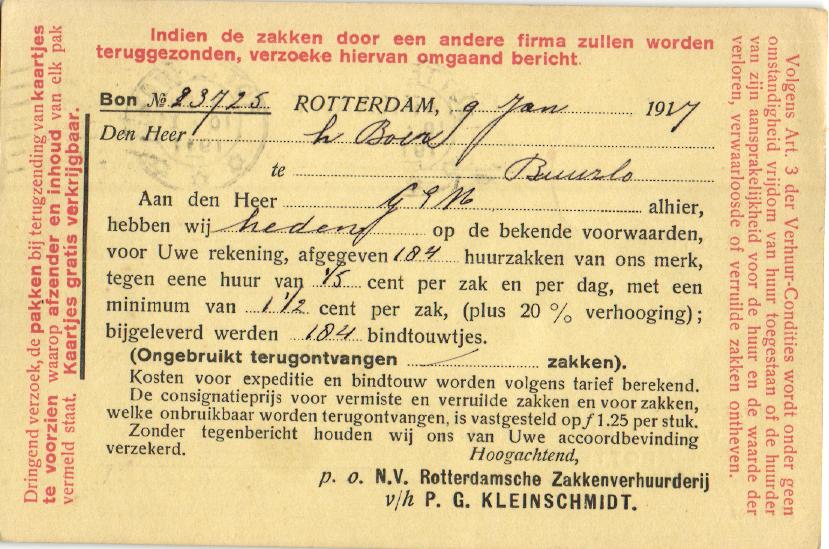 Indien de zakken door een andere firma zullen worden
teruggezonden, verzoeke hiervan omgaand bericht.
Bon № 23725 ROTTERDAM, 9 Jan 1917
Den Heer h Boers
te Buurlo
Aan den Heer G E M alhier,
hebben wij heden op de bekende voorwaarden,
voor Uwe rekening, afgegeven 184 huurzakken van ons merk,
tegen eene huur van 1/5 cent per zak en per dag, met een
minimum van 1 1/2 cent per zak, (plus 20 % verhooging);
bijgeleverd werden 184 bindtouwtjes.
(Ongebruikt terugontvangen zakken).
Kosten voor expeditie en bindtouw worden volgens tarief berekend.
De consignatieprijs voor vermiste en verruilde zakken en voor zakken,
welke onbruikbaar worden terugontvangen, is vastgesteld op f 1.25 per stuk.
Zonder tegenbericht houden wij ons van Uwe accoordbevinding
verzekerd. Hoogachtend,
p. o. N.V. Rotterdamsche Zakkenverhuurderij
v/h P. G. KLEINSCHMIDT.
Dringend verzoek, de pakken bij terugzending van kaartjes
te voorzien waarop afzender en inhoud van elk pak
vermeld staat. Kaartjes gratis verkrijgbaar.
Volgens Art. 3 der Verhuur-Condities wordt onder geen
omstandigheid vrijdom van huur toegestaan of de huurder
van zijn aansprakelijkheid voor de huur en de waarde der
verloren, verwaarloosde of verruilde zakken ontheven.